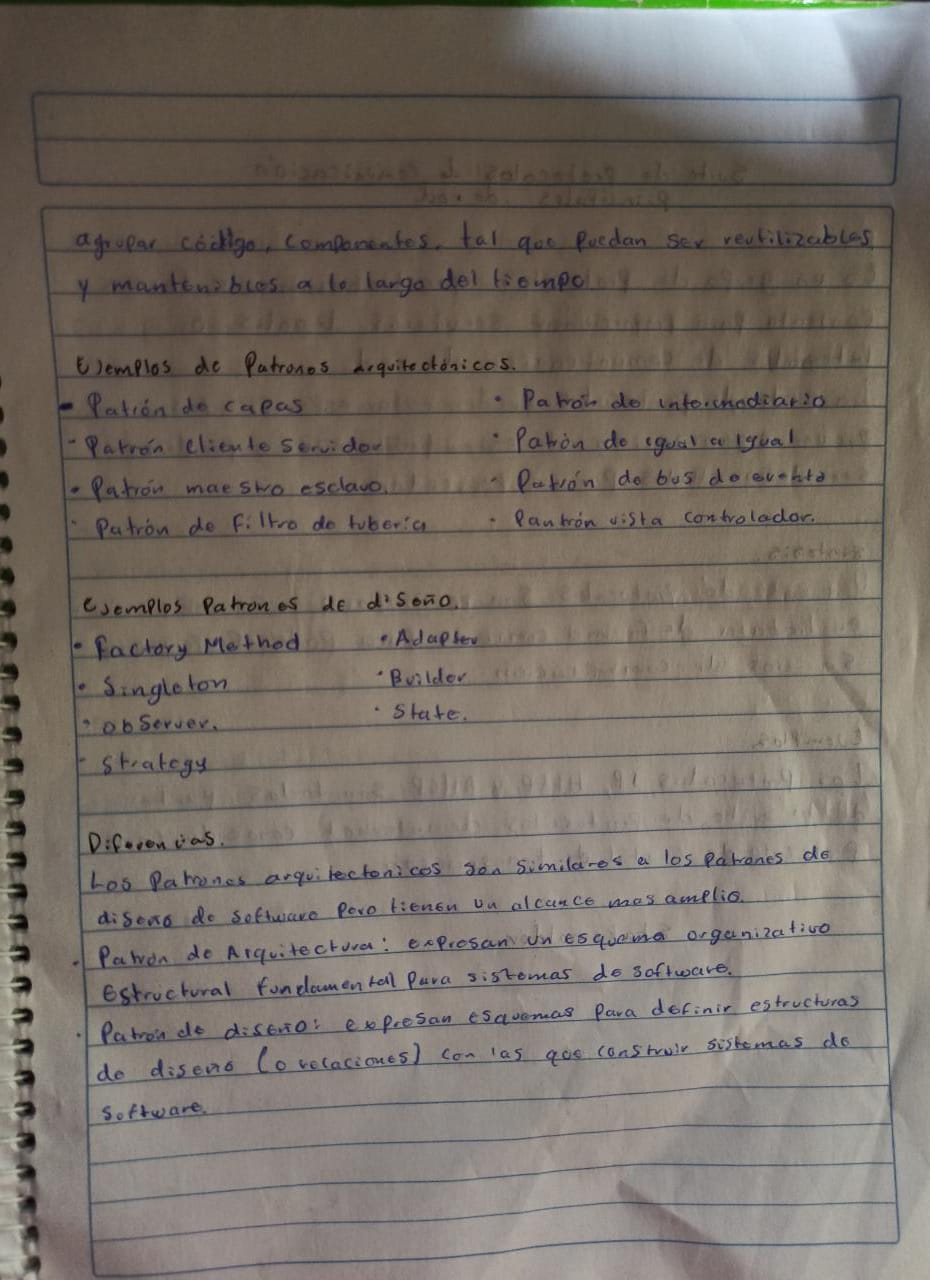 agrupar código, componentes, tal que puedan ser reutilizables
y mantenibles a lo largo del tiempo
Ejemplos de Patrones Arquitectónicos.
- Patrón de capas
• Patrón de intermediario
- Patrón cliente servidor
• Patrón de igual a igual
• Patrón maestro esclavo.
- Patrón de bus de evento
• Patrón de filtro de tubería
• Pantrón vista controlador.
Ejemplos Patrones de diseño.
• Factory Method
• Adapter
• Singleton
• Builder
• observer.
• State.
- Strategy
Diferencias.
Los Patrones arquitectonicos son similares a los patrones de
diseño de software pero tienen un alcance mas amplio.
• Patrón de Arquitectura: expresan un esquema organizativo
Estructural fundamental para sistemas de software.
• Patrón de diseño: expresan esquemas para definir estructuras
de diseño (o relaciones) con las que construir sistemas de
software.